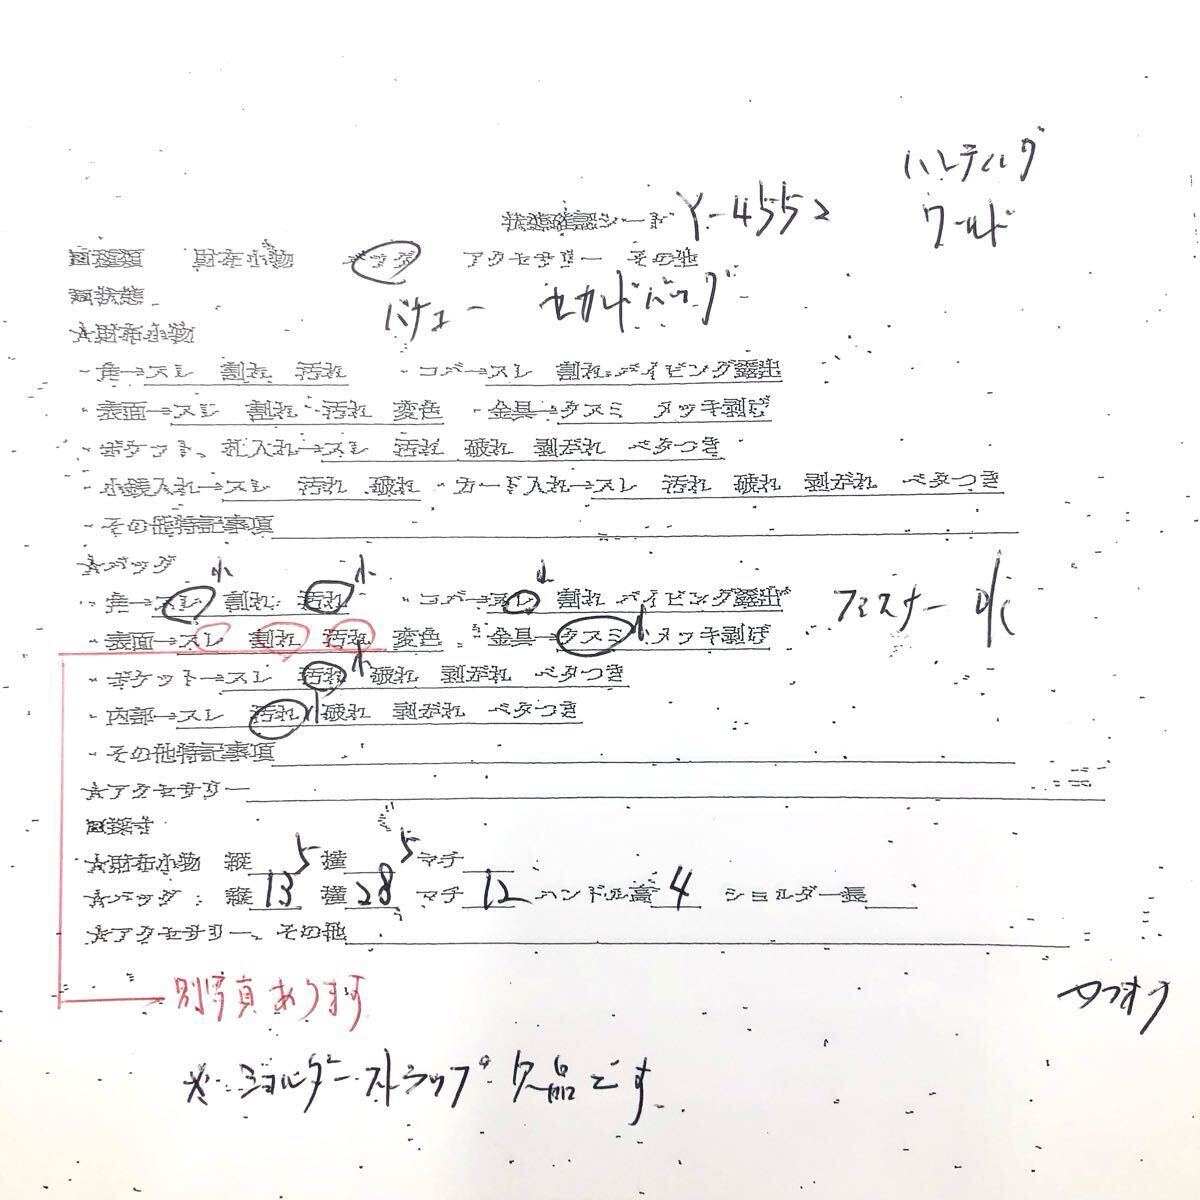 ハンティング
ワールド
状態確認シート Y-4552
■種類 財布小物 バッグ アクセサリー その他
■状態 バチュー セカンドバッグ
★財布小物
・角→スレ 割れ 汚れ ・コバ→スレ 割れ パイピング露出
・表面→スレ 割れ 汚れ 変色 ・金具→クスミ メッキ剥げ
・ポケット、札入れ→スレ 汚れ 破れ 剥がれ ベタつき
・小銭入れ→スレ 汚れ 破れ ・カード入れ→スレ 汚れ 破れ 剥がれ ベタつき
・その他特記事項
★バッグ
・角→スレ小 割れ 汚れ小 ・コバ→スレ小 割れ パイピング露出 ファスナー 小
・表面→スレ 割れ 汚れ 変色 ・金具→クスミ小 メッキ剥げ
・ポケット→スレ 汚れ小 破れ 剥がれ ベタつき
・内部→スレ 汚れ小 破れ 剥がれ ベタつき
・その他特記事項
★アクセサリー
■採寸
★財布小物 縦 横 マチ
★バッグ：縦 13.5 横 28.5 マチ 12 ハンドル高 4 ショルダー長
★アクセサリー、その他
別写真あります
ヤフオク
※ショルダーストラップ欠品です